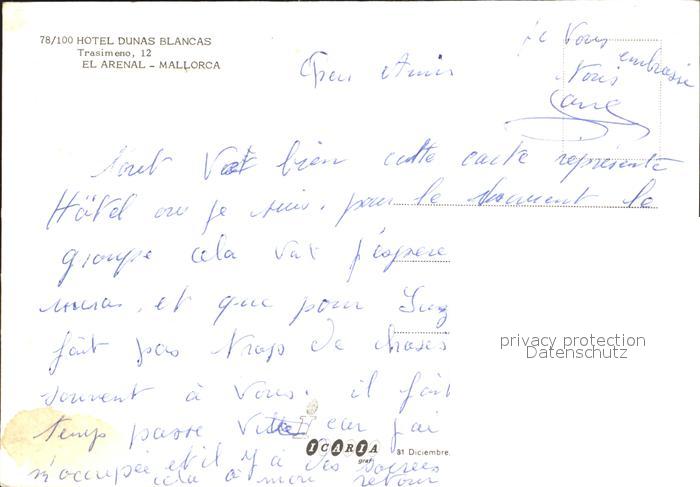 78/100 HOTEL DUNAS BLANCAS
Trasimeno, 12
EL ARENAL - MALLORCA
je Vous
embrasse
Amis
tout Vat bien cette carte représente
Hôtel ou je suis. pour le moment le
groupe cela vat j'espère
et que pour
fait pas trop de choses
souvent à Vous. il fait
temps passe Vitte car j'ai
m'occupée et il y a des soirées
cela à mon retour
privacy protection
Datenschutz
ICARIA
graf
81 Diciembre.